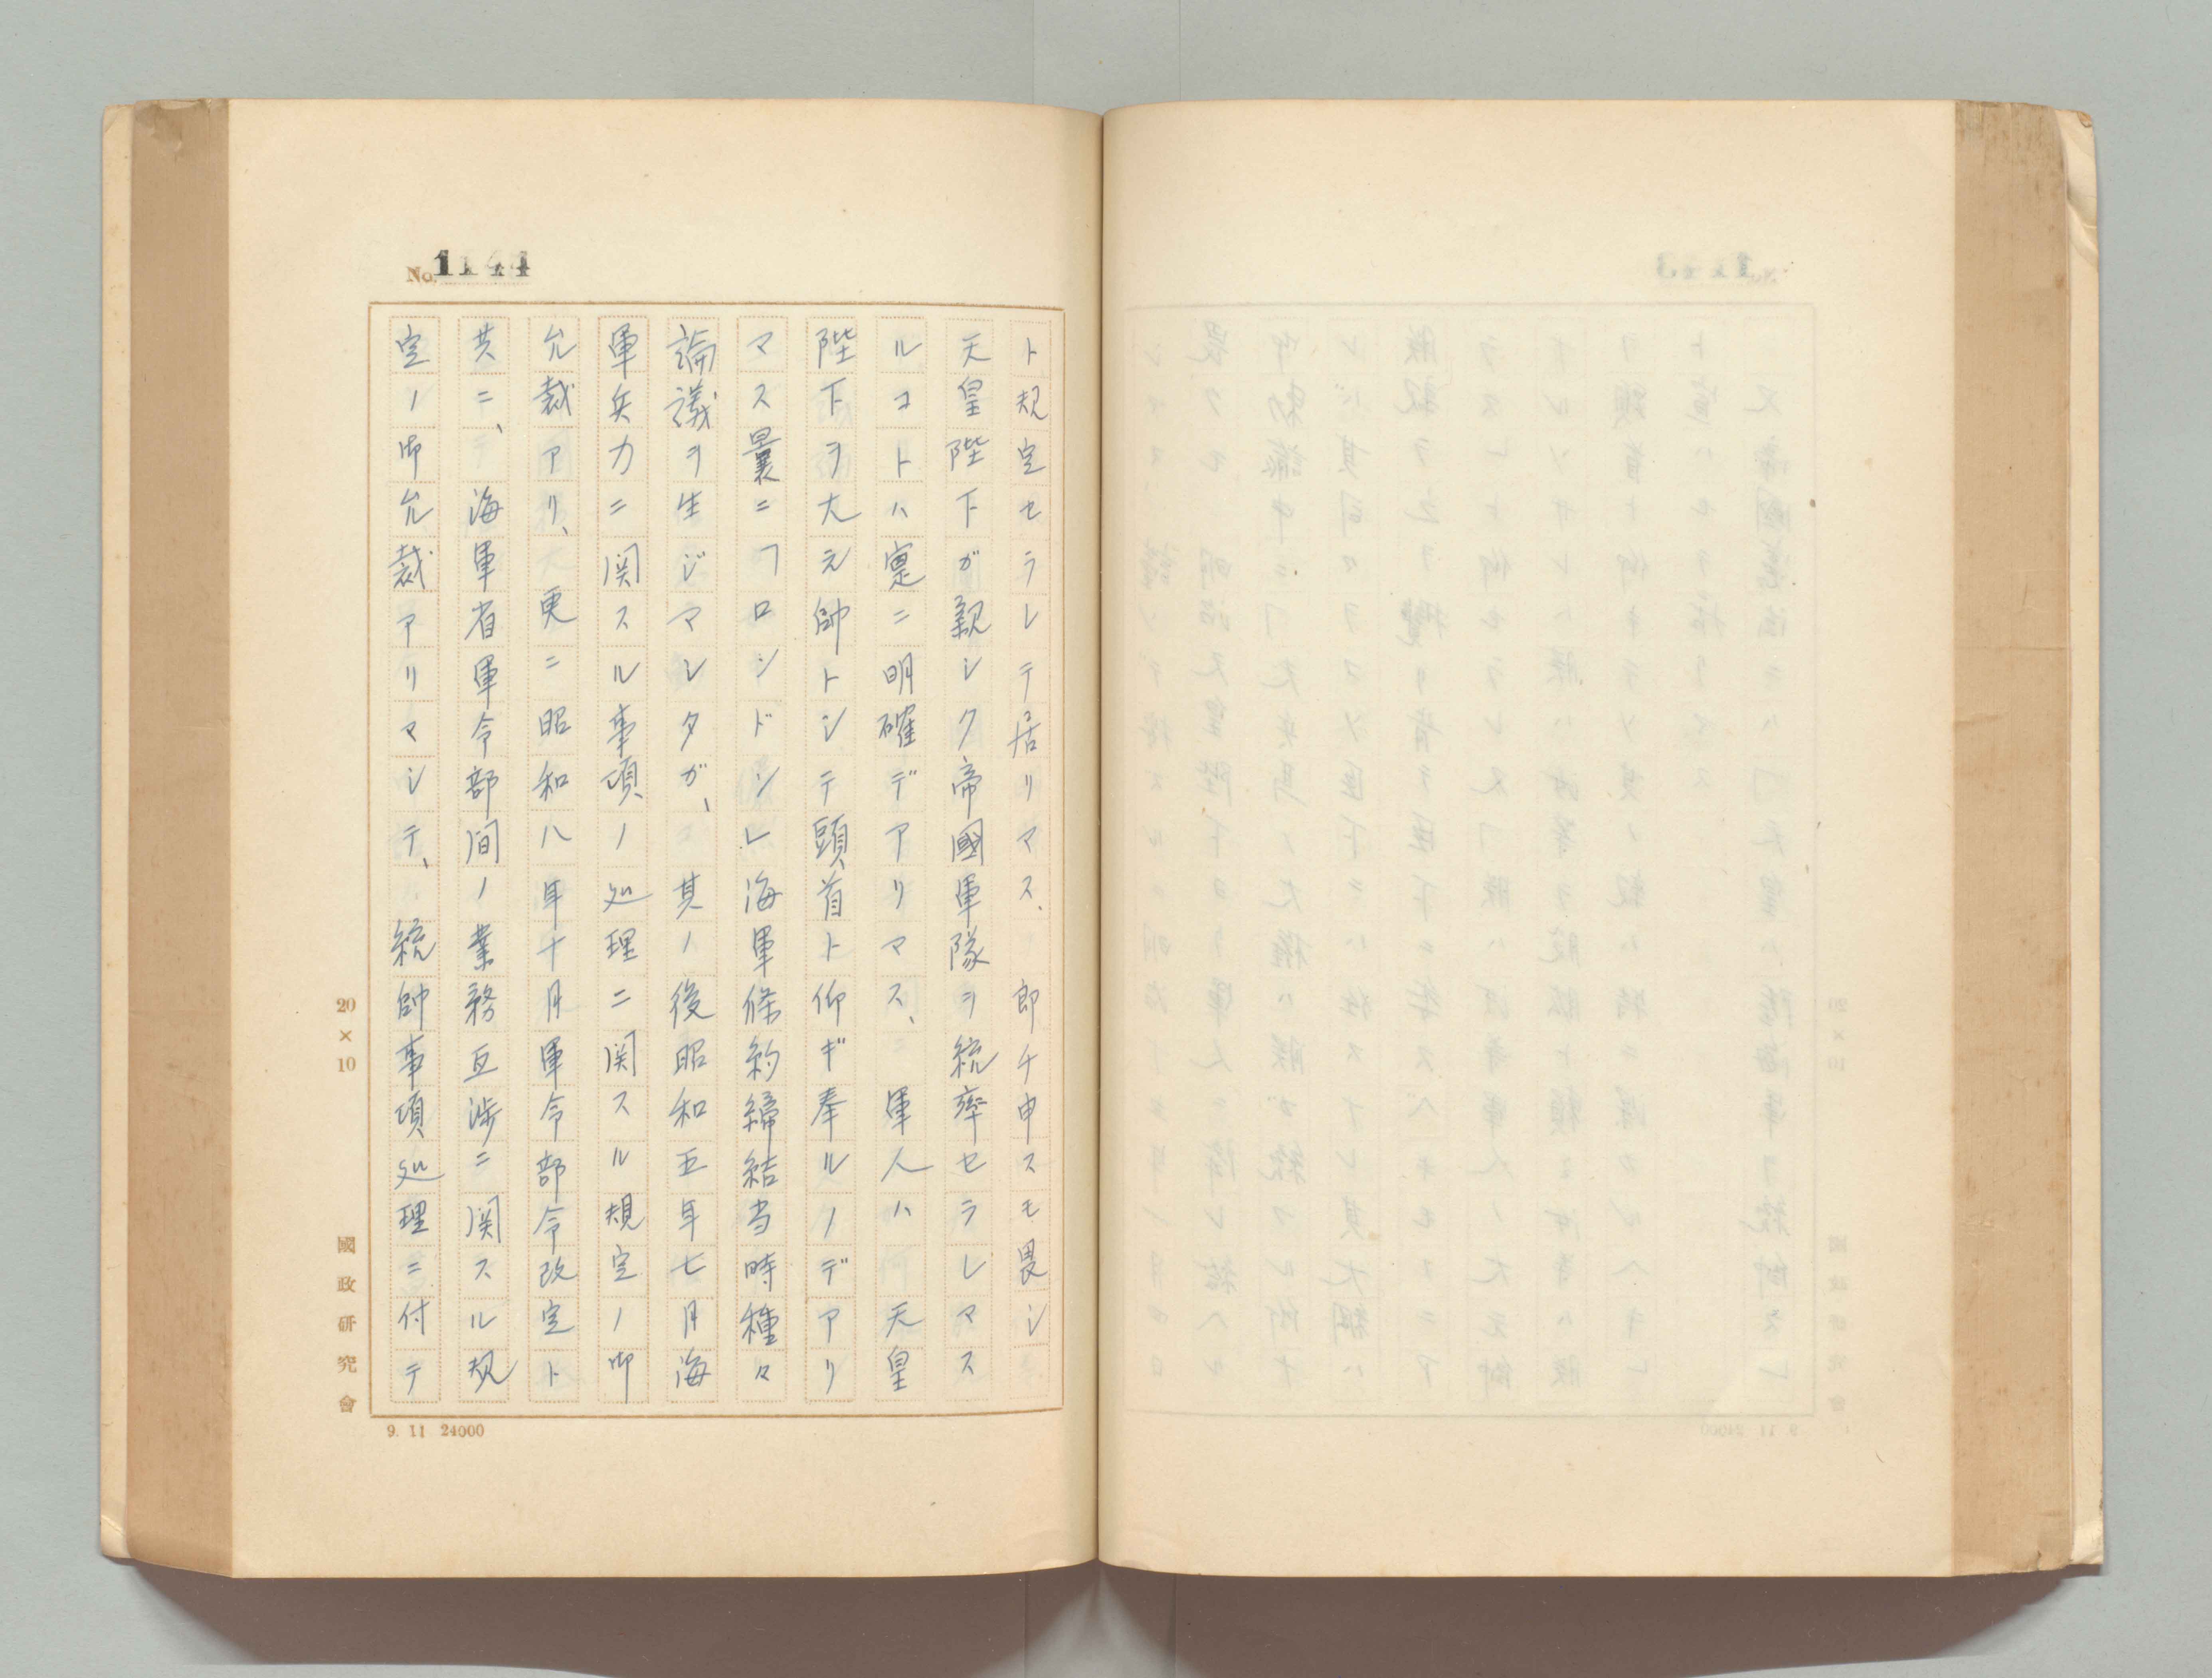 No. 1144
ト規定セラレテ居リマス、郎チ申スモ畏シ
天皇陛下ガ親シク帝國軍隊ヲ統率セラレマス
ルコトハ寔ニ明確デアリマス、軍人ハ天皇
陛下ヲ大元帥トシテ頭首ト仰ギ奉ルノデアリ
マス曩ニ「ロンドン」海軍條約締結当時種々
論議ヲ生ジマシタガ、其ノ後昭和五年七月海
軍兵力ニ関スル事項ノ処理ニ関スル規定ノ御
允裁アリ、更ニ昭和八年十月軍令部令改定ト
共ニ、海軍省軍令部間ノ業務互渉ニ関スル規
定ノ御允裁アリマシテ、統帥事項処理ニ付テ
20×10
國政研究會
9. 11 24000